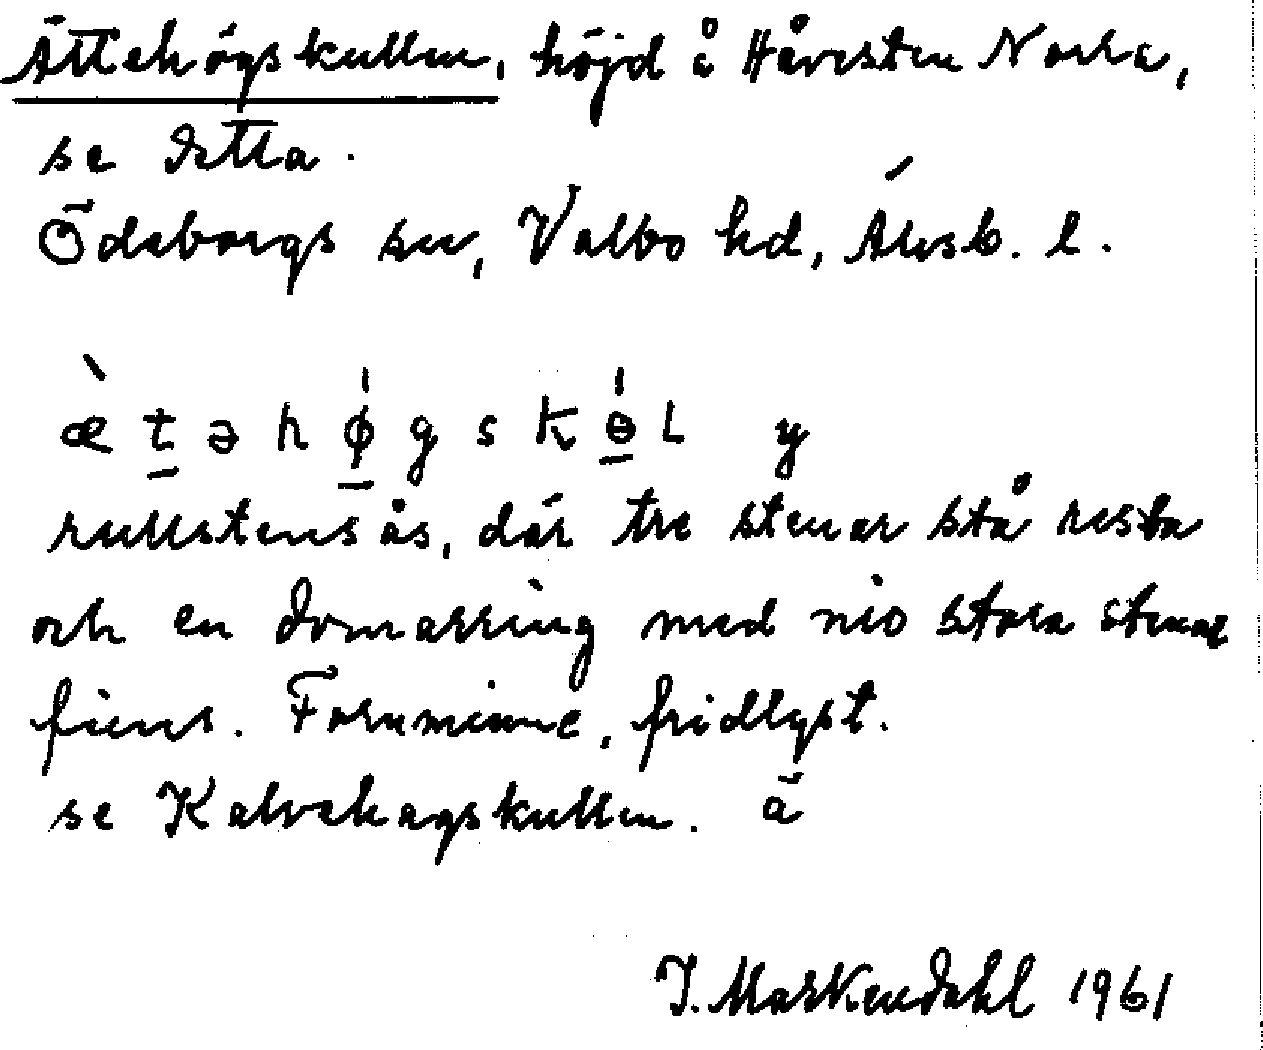 Ättehögskullen, höjd å Håvesten Norra,
se detta.
Ödeborgs sn, Valbo hd, Älvsb. l.
æ̀ t̲ ə h ø̲̍ g s k ɵ̲̍ L y
rullstensås, där tre stenar stå resta
och en domarring med nio stora stenar
finns. Fornminne, fridlyst.
se Kalvehagskullen. ä
J. Markendahl 1961